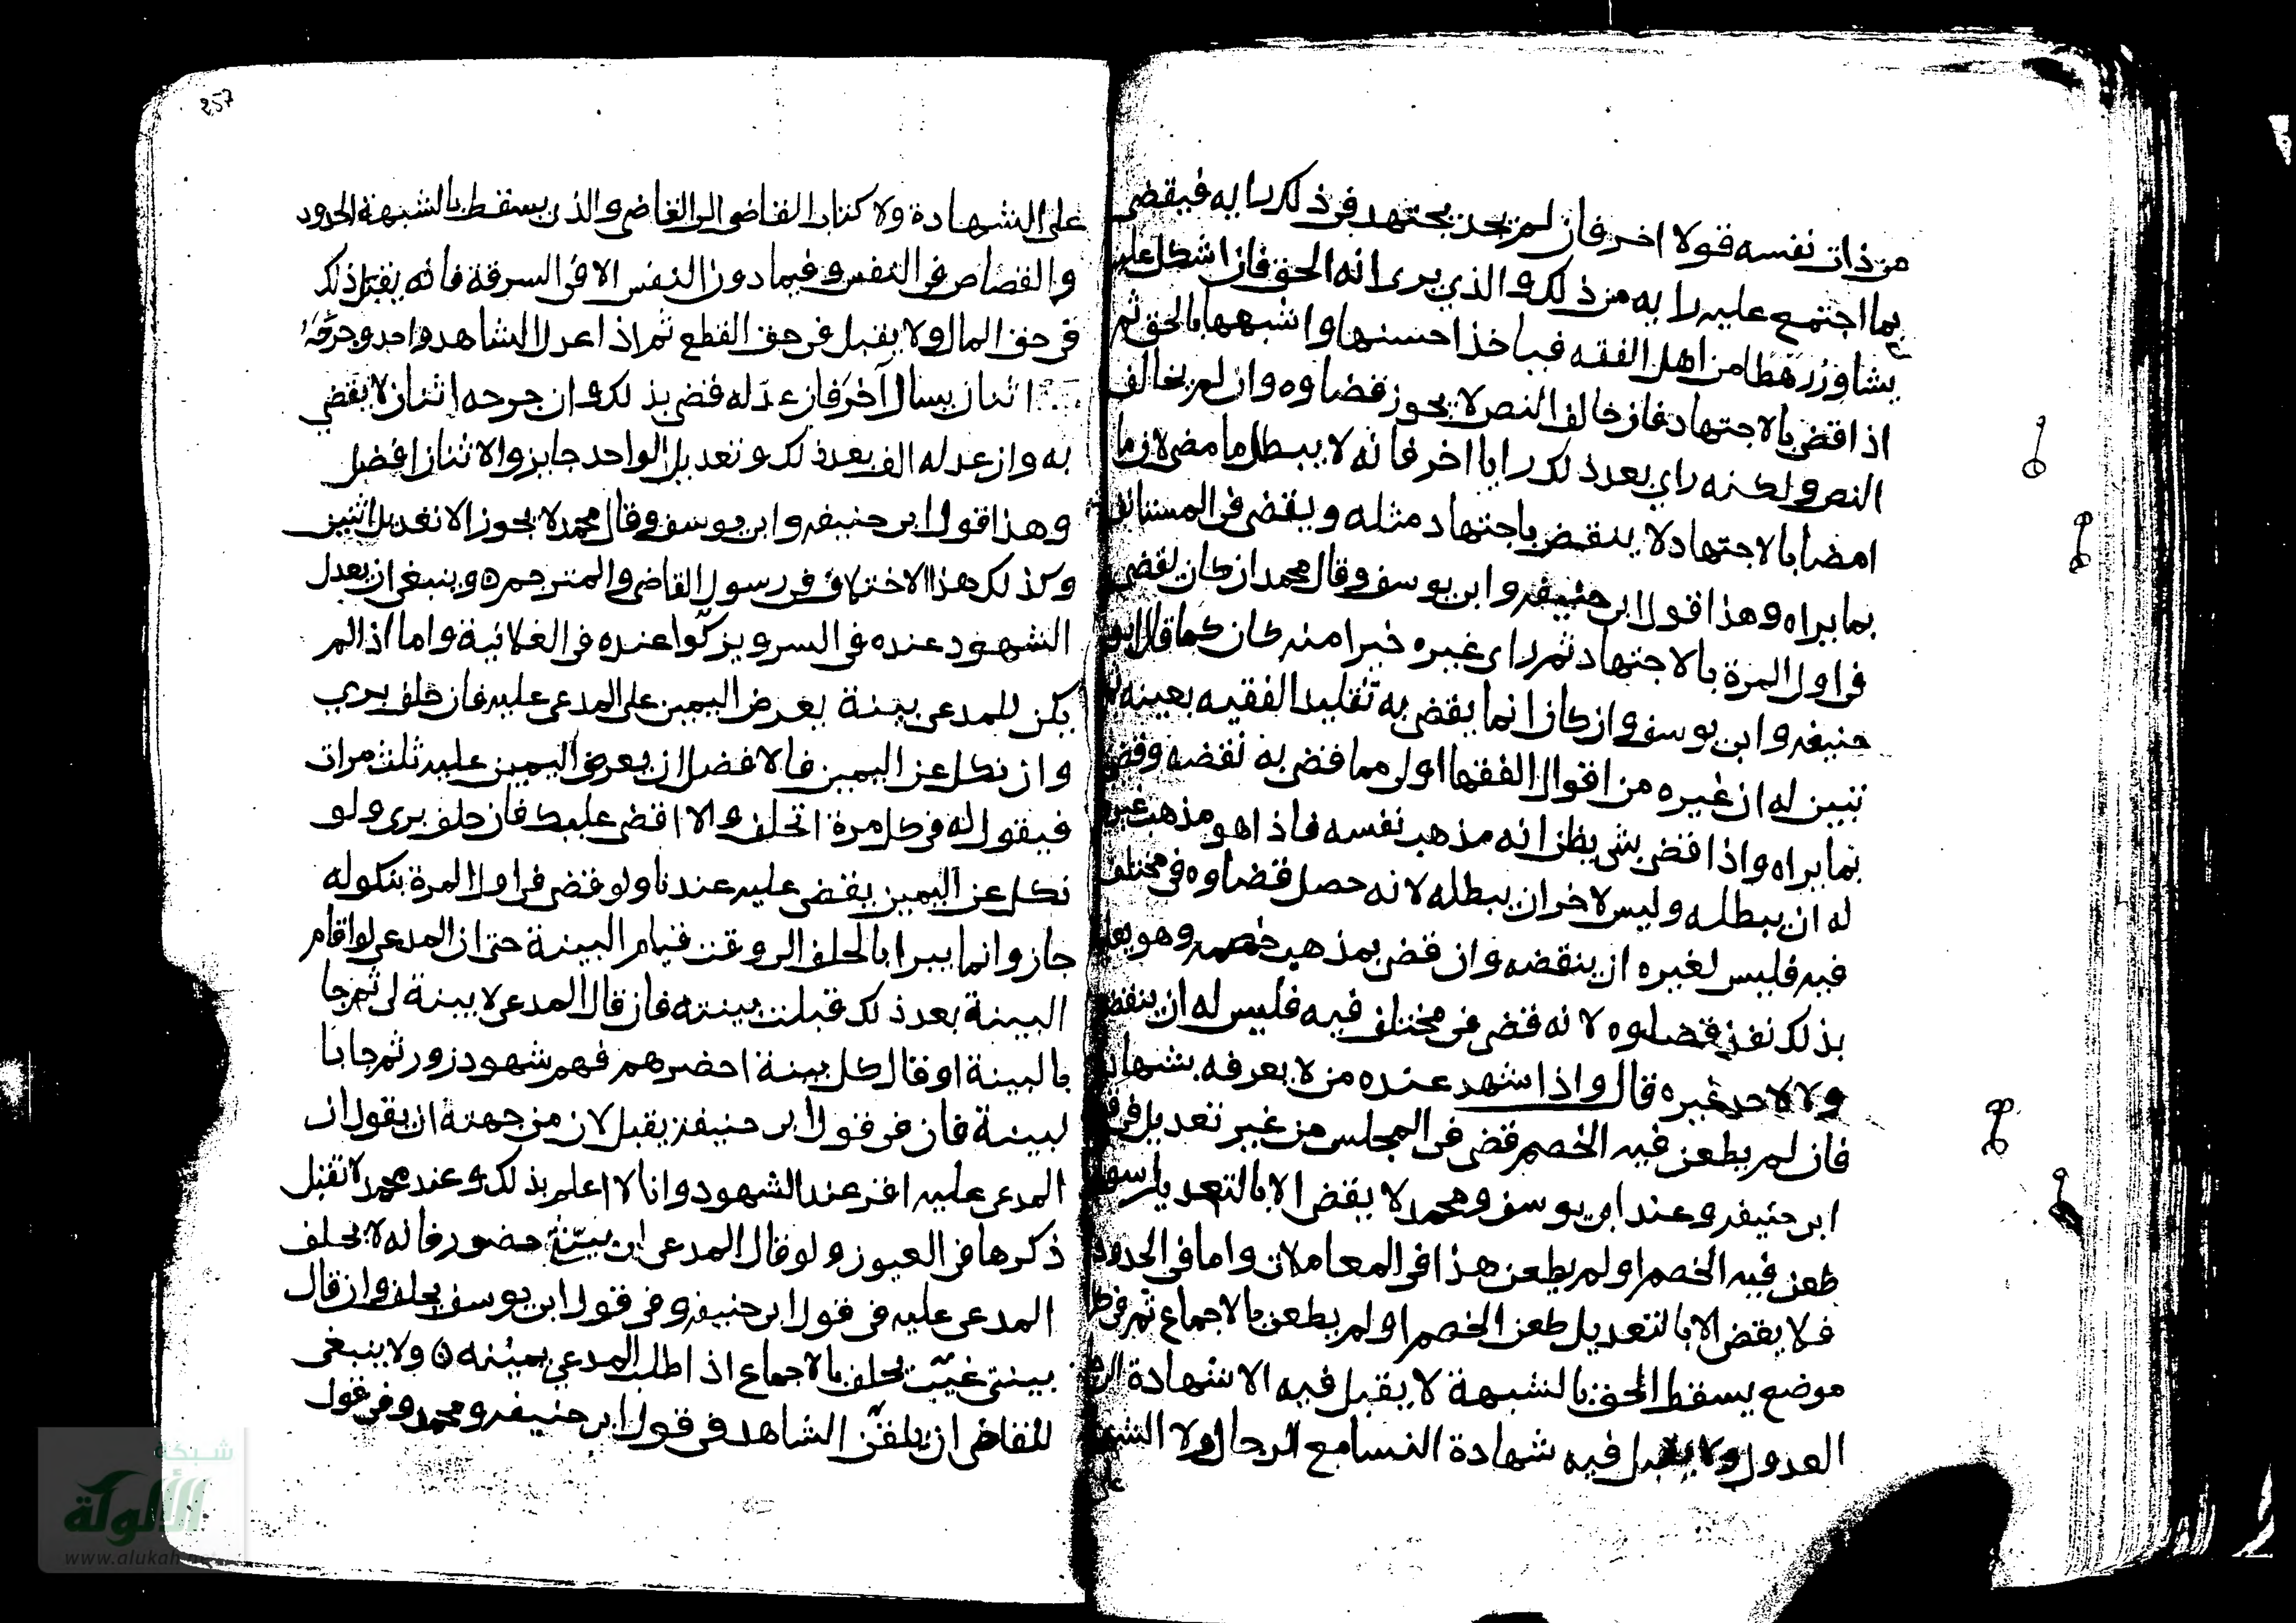 من ذات نفسه قولا اخر فان لم يجد يجتهد في ذلك رايه فيقضي
بما اجتمع عليه رايه من ذلك والذي يرى انه الحق فان اشكل عليه
يشاور رهطا من اهل الفقه فياخذ احسنها واشبهها بالحق ثم
اذا قضى بالاجتهاد فان خالف النص لا يجوز قضاوه وان لم يخالف
النص ولكنه راي بعد ذلك رايا اخر فانه لا يبطل ما مضى لان ما
امضا بالاجتهاد لا ينقض باجتهاد مثله ويقضي في المستانف
بما يراه وهذا قول ابي حنيفه وابي يوسف وقال محمد ان كان يقضي
في اول المرة بالاجتهاد ثم راى غيره خيرا منه كان كما قال ابو
حنيفه وابي يوسف وان كان انما يقضي به تقليد الفقيه بعينه ثم
تبين له ان غيره من اقوال الفقها اولى مما قضى به نقضه وقضى
بما يراه واذا قضى بشي يظن انه مذهب نفسه فاذا هو مذهب غيره
له ان يبطله وليس لاخر ان يبطله لانه حصل قضاوه في مختلف
فيه فليس لغيره ان ينقضه وان قضى بمذهب خصمه وهو يعلم
بذلك نفذ قضاوه لانه قضى في مختلف فيه فليس له ان ينقضه
ولا لاحد غيره قال واذا شهد عنده من لا يعرفه بشهادة
فان لم يطعن فيه الخصم قضى في المجلس من غير تعديل في قول
ابي حنيفه وعند ابي يوسف ومحمد لا يقضي الا بالتعديل سوا
طعن فيه الخصم او لم يطعن هذا في المعاملات واما في الحدود
فلا يقضي الا بالتعديل طعن الخصم او لم يطعن بالاجماع ثم في كل
موضع يسقط الحق بالشبهة لا يقبل فيه الا شهادة
العدول ولا يقبل فيه شهادة النسا مع الرجال ولا الشهادة
257
على الشهادة ولا كتاب القاضي الى القاضي والذي يسقط بالشبهة الحدود
والقصاص في النفس وفيما دون النفس الا في السرقة فانه يقبل ذلك
في حق المال ولا يقبل في حق القطع ثم اذا عدل الشاهد واحد وجرحه
اثنان يسال آخر فان عدله قضى بذلك وان جرحه اثنان لا يقضي
به وان عدله الف بعد ذلك وتعديل الواحد جايز والاثنان افضل
وهذا قول ابي حنيفه وابي يوسف وقال محمد لا يجوز الا تعديل اثنين
وكذلك هذا الاختلاف في رسول القاضي والمترجم ه وينبغي ان يعدل
الشهود عنده في السر ويزكوا عنده في العلانية واما اذا لم
يكن للمدعي بينة يعرض اليمين على المدعى عليه فان حلف يبري
وان نكل عن اليمين فالافضل ان يعرض اليمين عليه ثلث مرات
فيقول له في كل مرة اتحلف والا اقضي عليك فان حلف بري ولو
نكل عن اليمين يقضي عليه عندنا ولو قضى في اول المرة بنكوله
جاز وانما يبرا بالحلف الى وقت قيام البينة حتى ان المدعي لو اقام
البينة بعد ذلك قبلت بينته فان قال المدعي لا بينة لي ثم جا
بالبينة او قال كل بينة احضرهم فهم شهود زور ثم جا با
لبينة فان في قول ابي حنيفة يقبل لان من جهته ان يقول ان
المدعى عليه اقر عند الشهود وانا لا اعلم بذلك وعند محمد لا تقبل
ذكرها في العيون ولو قال المدعي ان بينتي حضور فانه لا يحلف
المدعى عليه في قول ابي حنيفه وفي قول ابي يوسف يحلف وان قال
بينتي غيب يحلف بالاجماع اذا طلب المدعي يمينه ه ولا ينبغي
للقاضي ان يلقن الشاهد في قول ابي حنيفه ومحمد وفي قول
شبكة
الألوكة
www.alukah.net